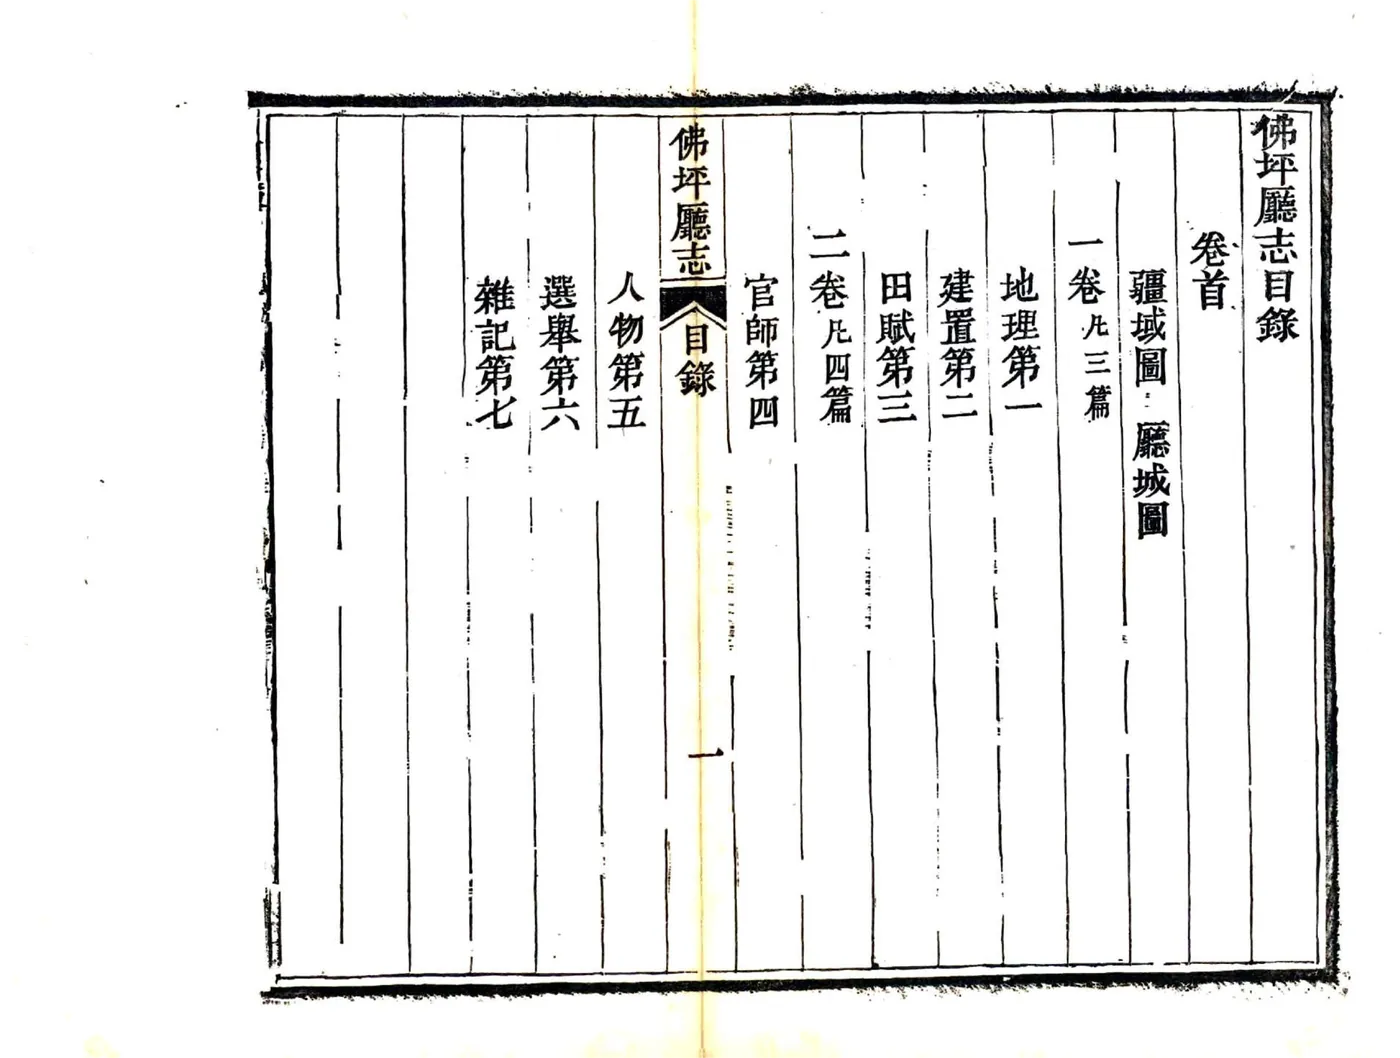 佛坪廳志目錄
卷首
疆域圖 廳城圖
一卷凡三篇
地理第一
建置第二
田賦第三
二卷凡四篇
官師第四
佛坪廳志 目錄 一
人物第五
選舉第六
雜記第七